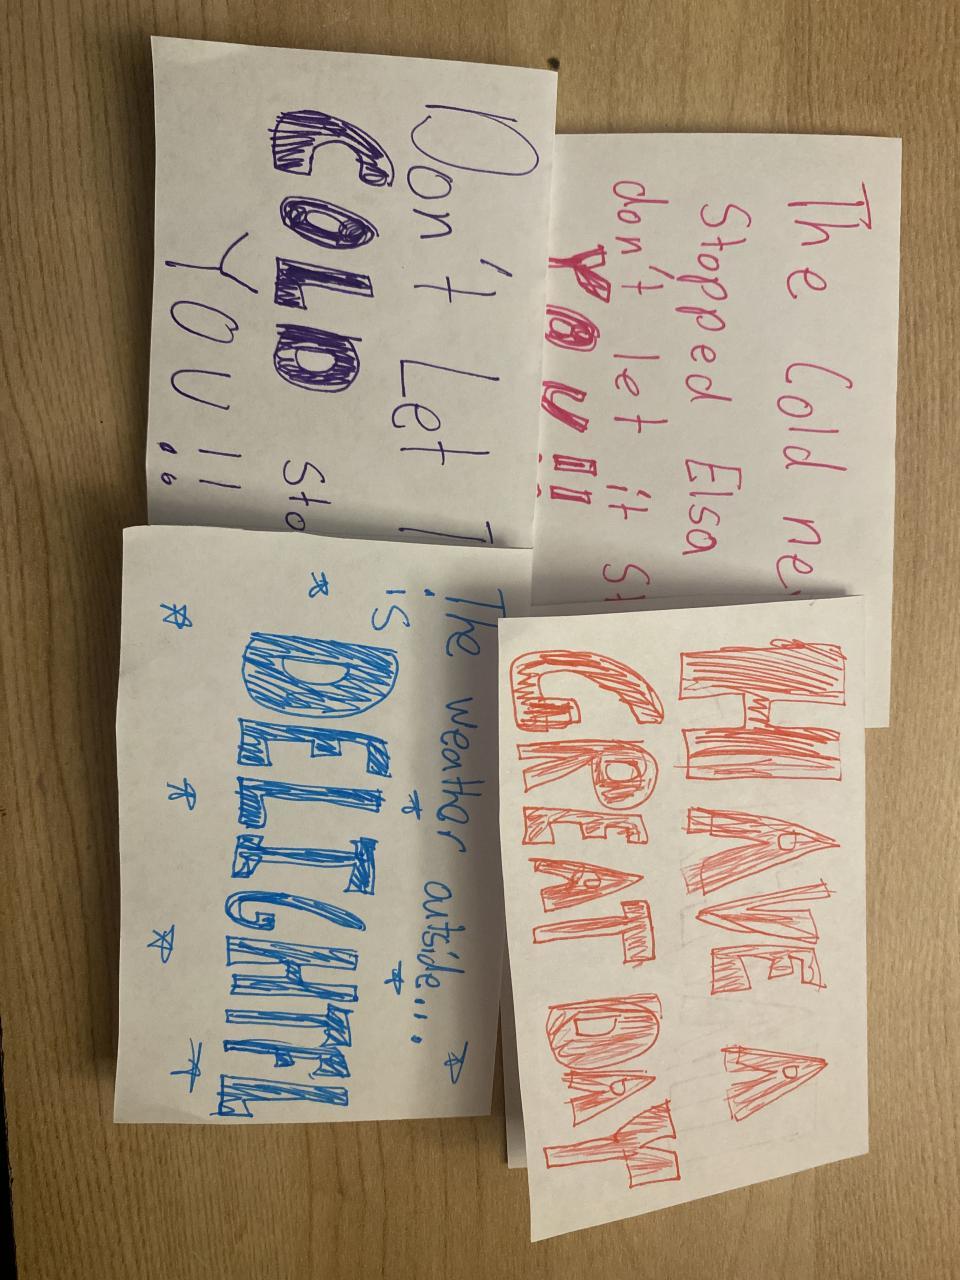 The Cold ne
Stopped Elsa
don't let it st
YOU!!
HAVE A
GREAT DAY
Don't Let T
COLD sto
You!!
The weather outside....
is
DELIGHTFL